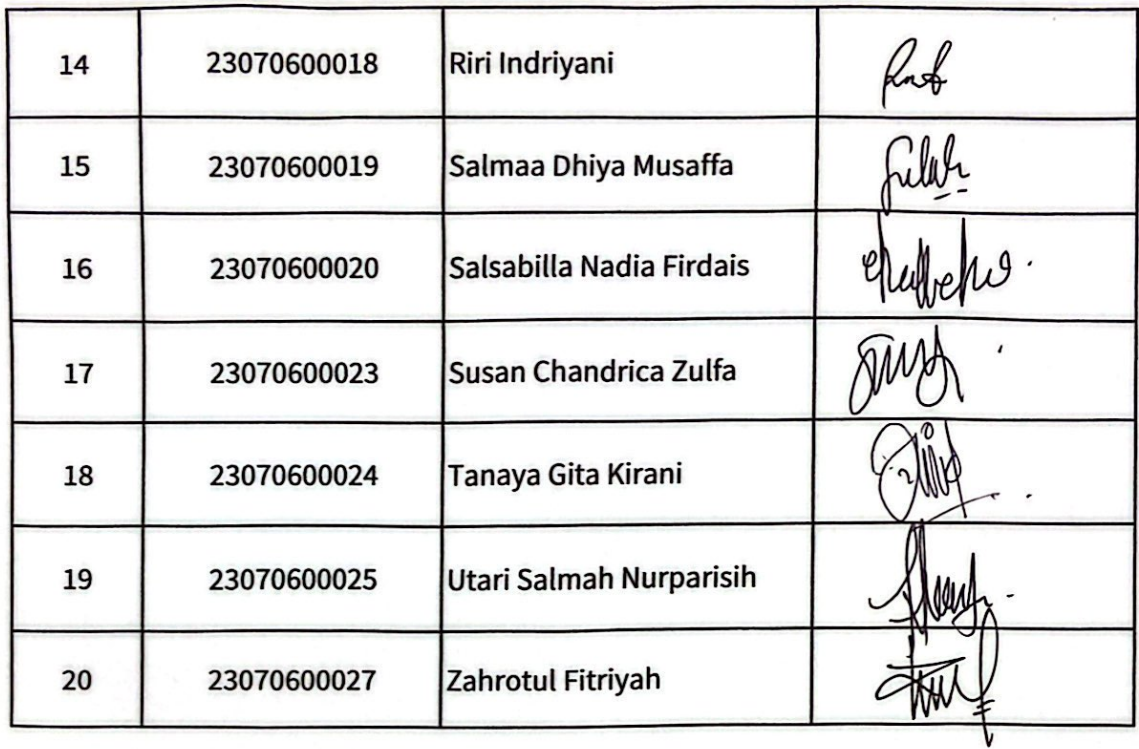 14 23070600018 Riri Indriyani
15 23070600019 Salmaa Dhiya Musaffa
16 23070600020 Salsabilla Nadia Firdais
17 23070600023 Susan Chandrica Zulfa
18 23070600024 Tanaya Gita Kirani
19 23070600025 Utari Salmah Nurparisih
20 23070600027 Zahrotul Fitriyah